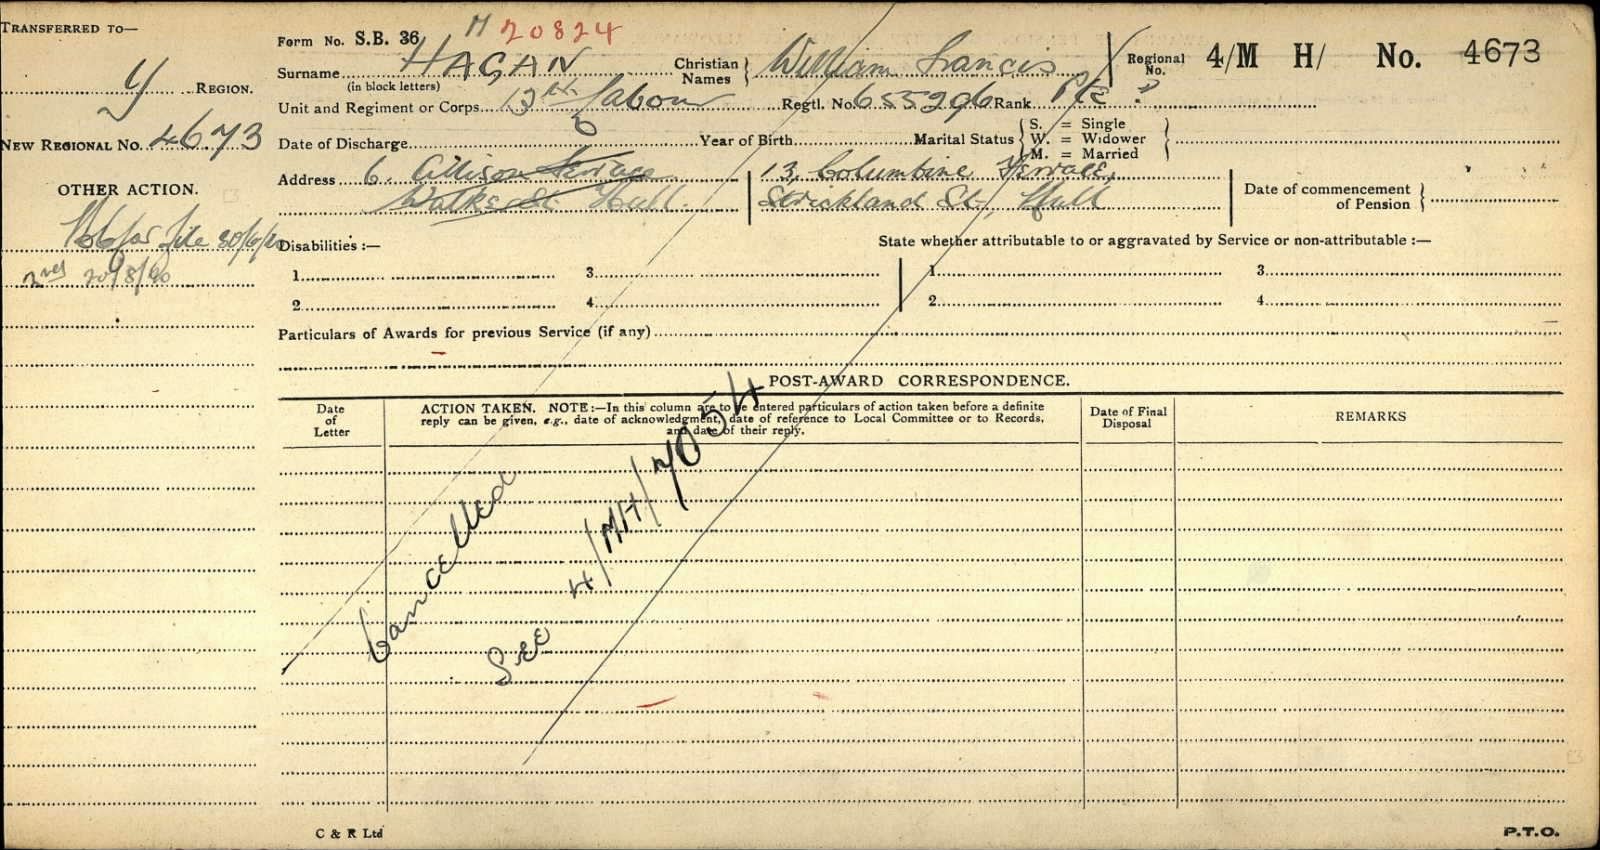 TRANSFERRED TO—
Y REGION.
NEW REGIONAL No. 4673
OTHER ACTION.
file 30/6/20
20/8/20
Form No. S.B. 36
H 20824
Surname HAGAN
(in block letters)
Christian Names William Francis
Regional No. 4/M H/ No. 4673
Unit and Regiment or Corps 13th Labour
Regtl. No 655296 Rank Pte ?
Date of Discharge
Year of Birth
Marital Status
S. = Single
W. = Widower
M. = Married
Address 6. Allison Terrace
Walker St. Hull.
13, Columbine Terrace,
Strickland St., Hull
Date of commencement of Pension
Disabilities :—
State whether attributable to or aggravated by Service or non-attributable :—
1 3 1 3
2 4 2 4
Particulars of Awards for previous Service (if any)
POST-AWARD CORRESPONDENCE.
Date of Letter
ACTION TAKEN. NOTE:—In this column are to be entered particulars of action taken before a definite
reply can be given, e.g., date of acknowledgment, date of reference to Local Committee or to Records,
and date of their reply.
Date of Final Disposal
REMARKS
Cancelled
See 4/MH/7054
C & R Ltd
P.T.O.